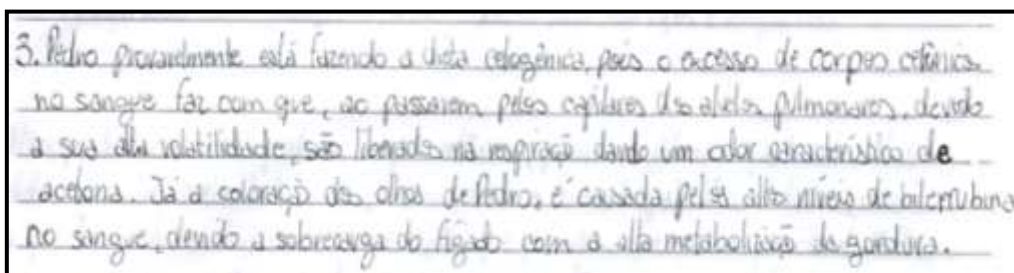 3. Pedro provavelmente está fazendo a dieta cetogênica, pois o excesso de corpos cetônicos
no sangue faz com que, ao passarem pelos capilares dos alvéolos pulmonares, devido
a sua alta volatilidade, são liberados na respiração dando um odor característico de
acetona. Já a coloração dos olhos de Pedro, é causada pelos altos níveis de bilerrubina
no sangue, devido a sobrecarga do fígado com a alta metabolização da gordura.